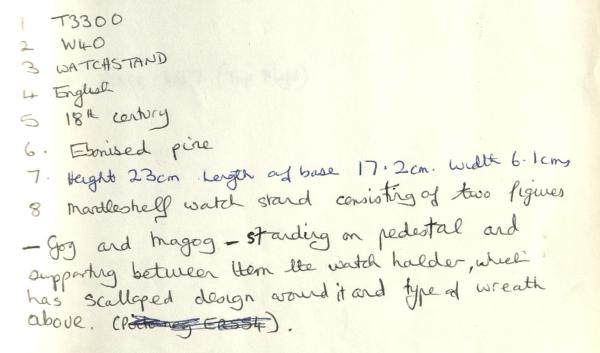 1 T3300
2 W40
3 WATCHSTAND
4 English
5 18th century
6. Ebonised pine
7. Height 23cm. Length of base 17.2cm. Width 6.1cms
8 Mantleshelf watch stand consisting of two figures
- Gog and Magog - standing on pedestal and
supporting between them the watch holder, which
has scalloped design around it and type of wreath
above. ( ).